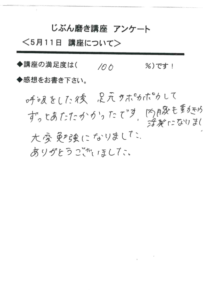 じぶん磨き講座 アンケート
＜5月11日 講座について＞
◆講座の満足度は( 100 %)です！
◆感想をお書き下さい。
呼吸をした後 足元 ポカポカして
ずっとあたたかかったです。
大変勉強になりました。
ありがとうございました。